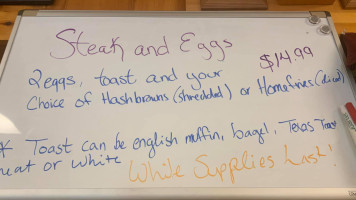 Steak and Eggs
$14.99
2eggs, toast and your
Choice of Hashbrowns (shredded) or Homefries (diced)
* Toast can be english muffin, bagel, Texas Toast
heat or white
While Supplies Last!